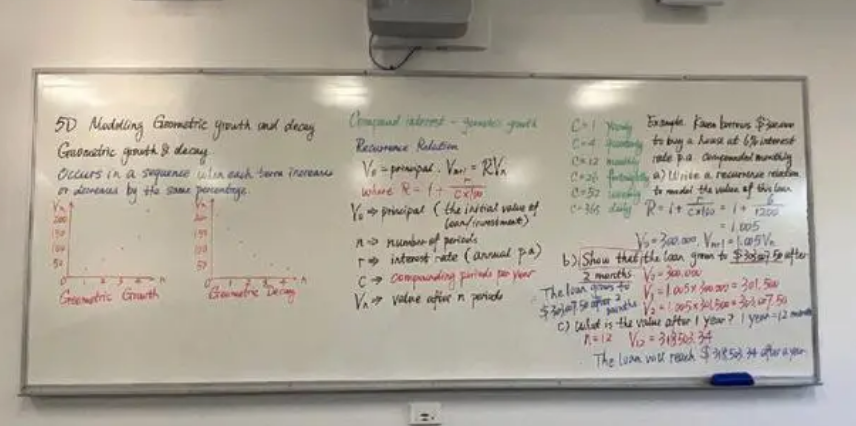 5D Modelling Geometric growth and decay
Geometric growth & decay
Occurs in a sequence when each term increases
or decreases by the same percentage.
Vn
200
150
100
50
0 1 2 3 4 n
Geometric Growth
Vn
200
150
100
50
0 1 2 3 4 n
Geometric Decay
Compound interest - geometric growth
Recurrence Relation
V₀ = principal, Vn+1 = RVn
where R = 1 + r/(c×100)
V₀ ⇒ principal (the initial value of
loan/investment)
n ⇒ number of periods
r ⇒ interest rate (annual p.a)
C ⇒ compounding periods per year
Vn ⇒ value after n periods
C=1 yearly
C=4 quarterly
C=12 monthly
C=26 fortnightly
C=52 weekly
C=365 daily
Example. Karen borrows $300,000
to buy a house at 6% interest
rate p.a compounded monthly
a) Write a recurrence relation
to model the value of this loan
R = 1 + r/(c×100) = 1 + 6/1200
= 1.005
V₀ = 300,000, Vn+1 = 1.005Vn
b) Show that the loan grows to $303007.50 after
2 months V₀ = 300,000
V₁ = 1.005 × 300,000 = 301,500
V₂ = 1.005 × 301,500 = 303,007.50
The loan grows to
$303007.50 after 2
months
c) What is the value after 1 year? 1 year = 12 months
n = 12 V₁₂ = 318503.34
The loan will reach $318503.34 after a year